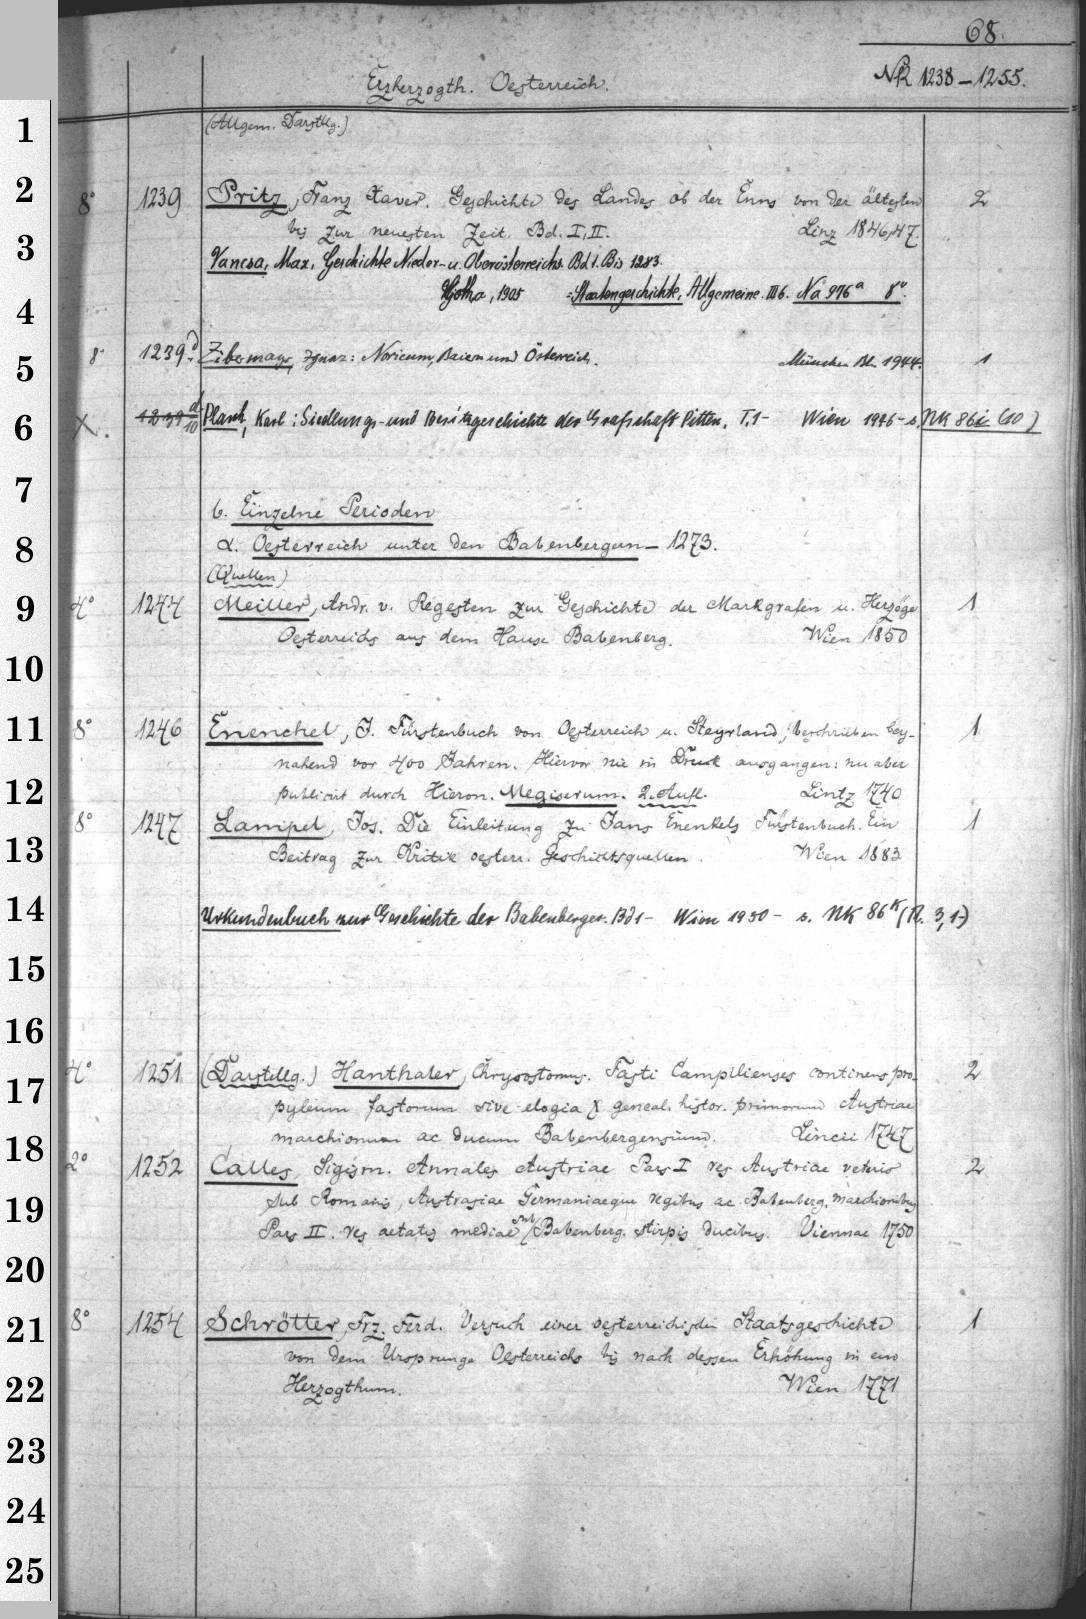 68.
Erzherzogth. Oesterreich. NK 1238-1255.
(Allgem. Darstllg.)
8° 1239 Pritz, Franz Xaver. Geschichte des Landes ob der Enns von der ältesten 2
bis zur neuesten Zeit. Bd. I, II. Linz 1846,47.
Vancsa, Max, Geschichte Nieder- u. Oberösterreichs. Bd 1. Bis 1283.
Gotha, 1905 =Staatengeschichte, Allgemeine. III 6. Na 976a 8°.
8° 1239d Zibermayr, Ignaz: Noricum, Baiern und Österreich. München Bln. 1944. 1
X. 1239d/10 Plank, Karl: Siedlungs- und Besitzgeschichte der Grafschaft Pitten. T.1- Wien 1946- s. NK 86i (10)
b. Einzelne Perioden
α. Oesterreich unter den Babenbergern - 1273.
(Quellen)
4° 1244 Meiller, Andr. v. Regesten zur Geschichte der Markgrafen u. Herzöge 1
Oesterreichs aus dem Hause Babenberg. Wien 1850
8° 1246 Enenchel, J. Fürstenbuch von Oesterreich u. Steyrland, beschrieben bey- 1
nahend vor 400 Jahren. Hievor nie in Druck ausgangen: nu aber
publicirt durch Hieron. Megiserum. 2. Aufl. Lintz 1740
8° 1247 Lampel, Jos. Die Einleitung zu Jans Enenkels Fürstenbuch. Ein 1
Beitrag zur Kritik oesterr. Geschichtsquellen. Wien 1883
Urkundenbuch zur Geschichte der Babenberger. Bd 1- Wien 1950- s. NK 86K (R. 3, 1-)
4° 1251 (Darstllg.) Hanthaler, Chrysostomus. Fasti Campilienses continens pro- 2
pyleum fastorum sive elogia geneal. histor. primorum Austriae
marchionum ac ducum Babenbergensium. Lincii 1747
2° 1252 Calles, Sigism. Annales Austriae Pars I res Austriae veteris 2
sub Romanis, Austrasiae Germaniaeque regibus ac Babenberg. marchionibus
Pars II. res aetatis mediae sub Babenberg. stirpis ducibus. Viennae 1750
8° 1254 Schrötter, Frz. Ferd. Versuch einer oesterreichischen Staatsgeschichte 1
von dem Ursprunge Oesterreichs bis nach dessen Erhöhung in ein
Herzogthum. Wien 1771
1
2
3
4
5
6
7
8
9
10
11
12
13
14
15
16
17
18
19
20
21
22
23
24
25